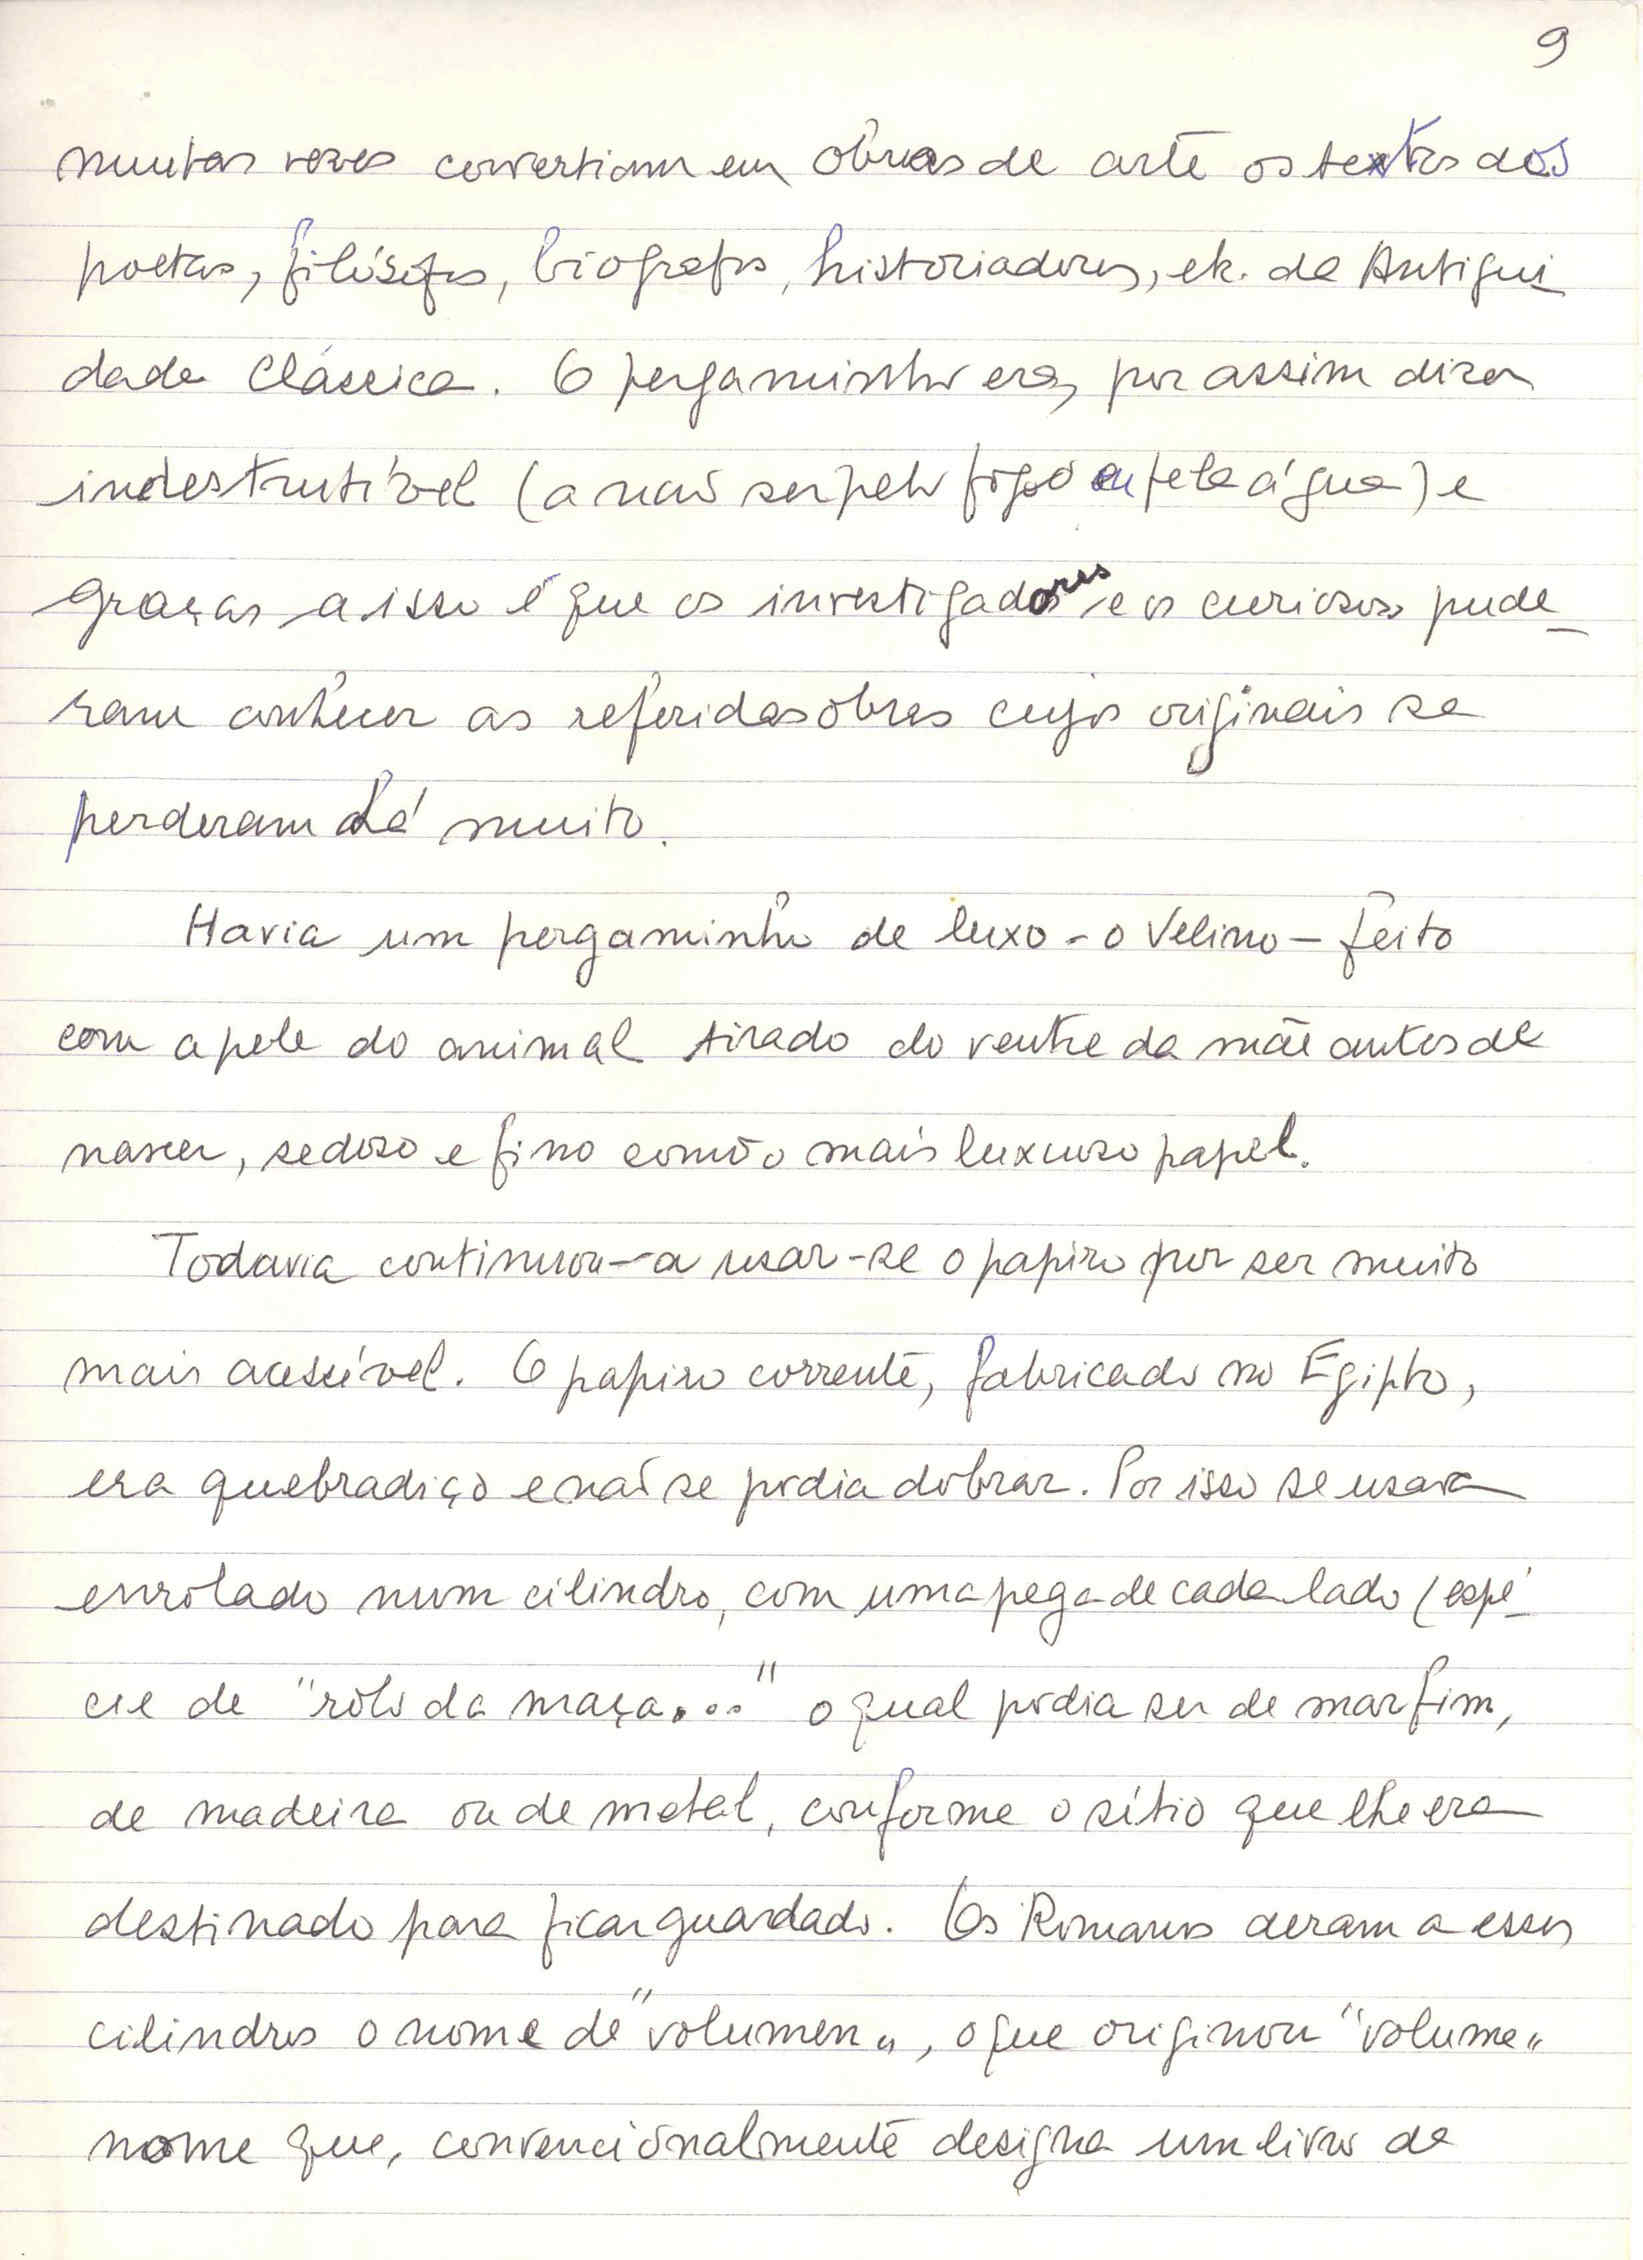 9
muitas vezes convertiam em obras de arte os textos dos
poetas, filósofos, biografos, historiadores, etc. da Antigui
dade Clássica. O pergaminho era, por assim dizer
indestrutível (a não ser pelo fogo ou pela água) e
graças a isso é que os investigadores e os curiosos pude_
ram conhecer as referidas obras cujos originais se
perderam há muito.
Havia um pergaminho de luxo - o Velino - feito
com a pele do animal tirado do ventre da mãe antes de
nascer, sedoso e fino como o mais luxuoso papel.
Todavia continuou-a usar-se o papiro por ser muito
mais acessível. O papiro corrente, fabricado no Egipto,
era quebradiço e não se podia dobrar. Por isso se usava
enrolado num cilindro, com uma pega de cada lado (espé_
cie de "rôlo da maça..." o qual podia ser de marfim,
de madeira ou de metal, conforme o sítio que lhe era
destinado para ficar guardado. Os Romanos deram a esses
cilindros o nome de "volumen", o que originou "volume"
nome que, convencionalmente designa um livro de